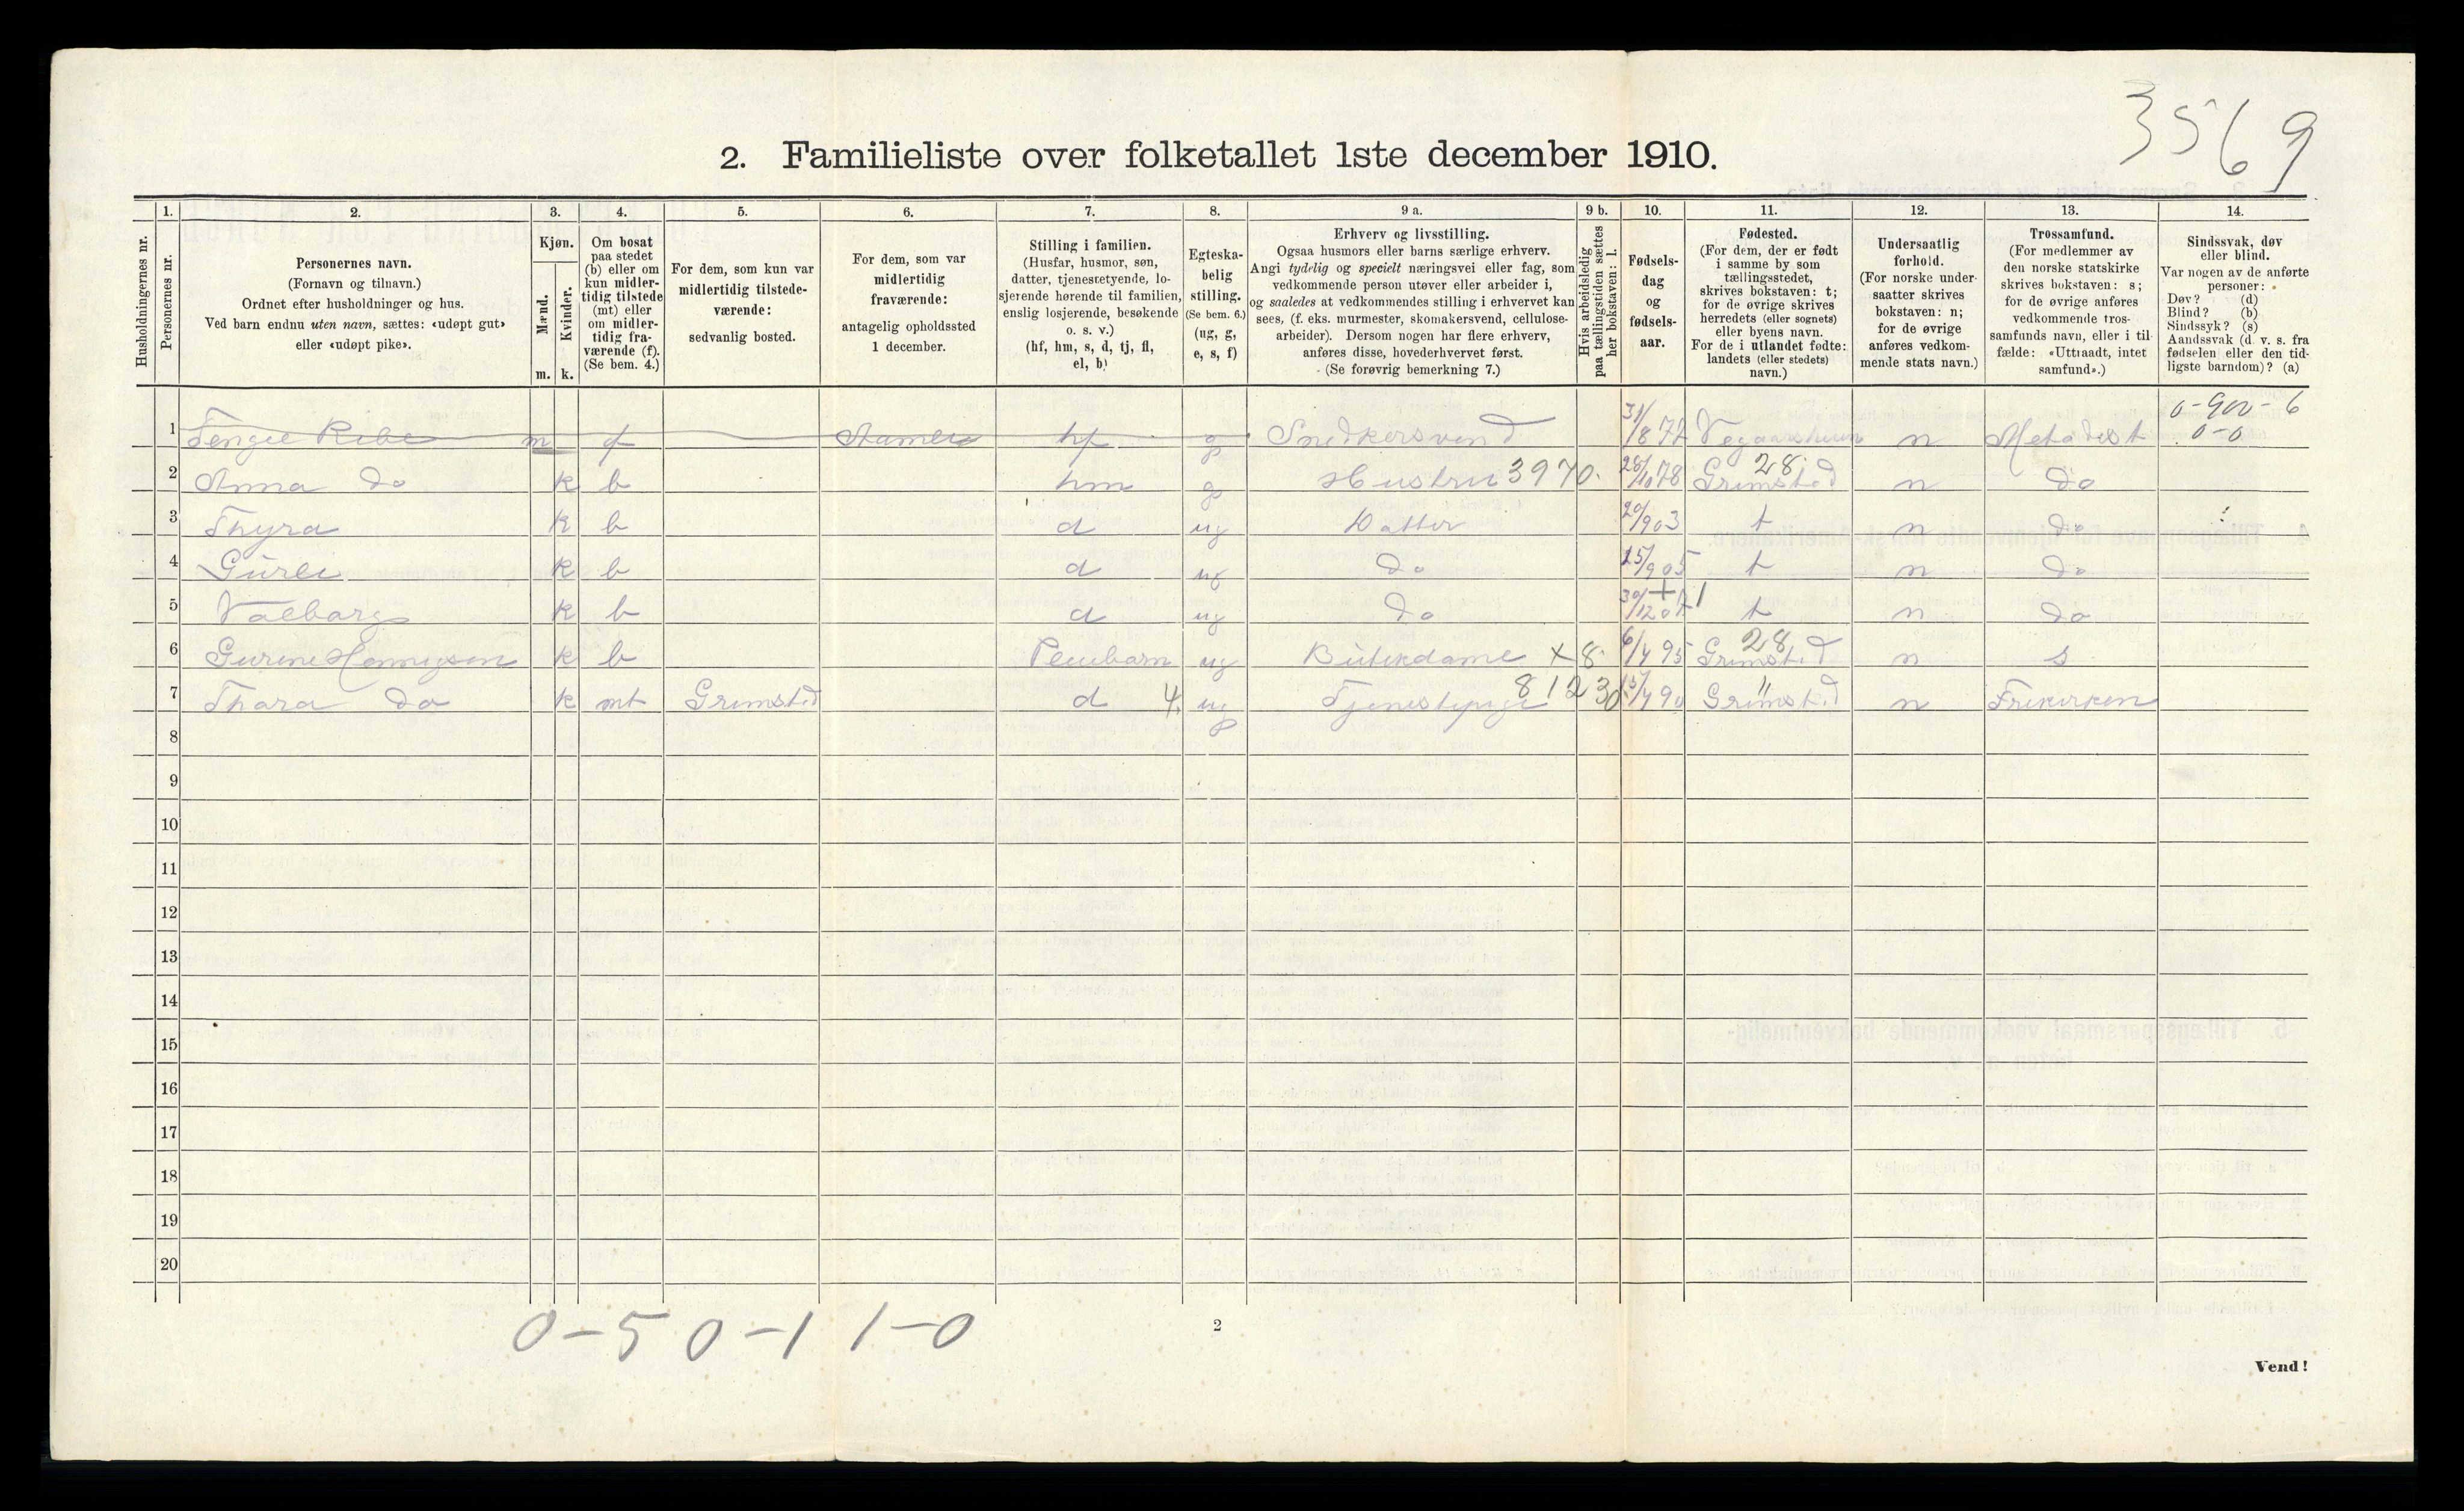 3569
2. Familieliste over folketallet 1ste december 1910.
Husholdningernes nr.
1. Personernes nr.
2. Personernes navn. (Fornavn og tilnavn.) Ordnet efter husholdninger og hus. Ved barn endnu uten navn, sættes: «udøpt gut» eller «udøpt pike».
3. Kjøn. Mænd. m. Kvinder. k.
4. Om bosat paa stedet (b) eller om kun midlertidig tilstede (mt) eller om midlertidig fraværende (f). (Se bem. 4.)
5. For dem, som kun var midlertidig tilstedeværende: sedvanlig bosted.
6. For dem, som var midlertidig fraværende: antagelig opholdssted 1 december.
7. Stilling i familien. (Husfar, husmor, søn, datter, tjenestetyende, losjerende hørende til familien, enslig losjerende, besøkende o. s. v.) (hf, hm, s, d, tj, fl, el, b)
8. Egteskabelig stilling. (Se bem. 6.) (ug, g, e, s, f)
9 a. Erhverv og livsstilling. Ogsaa husmors eller barns særlige erhverv. Angi tydelig og specielt næringsvei eller fag, som vedkommende person utøver eller arbeider i, og saaledes at vedkommendes stilling i erhvervet kan sees, (f. eks. murmester, skomakersvend, cellulosearbeider). Dersom nogen har flere erhverv, anføres disse, hovederhvervet først. (Se forøvrig bemerkning 7.)
9 b. Hvis arbeidsledig paa tællingstiden sættes her bokstaven: l.
10. Fødselsdag og fødselsaar.
11. Fødested. (For dem, der er født i samme by som tællingsstedet, skrives bokstaven: t; for de øvrige skrives herredets (eller sognets) eller byens navn. For de i utlandet fødte: landets (eller stedets) navn.)
12. Undersaatlig forhold. (For norske undersaatter skrives bokstaven: n; for de øvrige anføres vedkommende stats navn.)
13. Trossamfund. (For medlemmer av den norske statskirke skrives bokstaven: s; for de øvrige anføres vedkommende trossamfunds navn, eller i tilfælde: «Uttraadt, intet samfund».)
14. Sindssvak, døv eller blind. Var nogen av de anførte personer: Døv? (d) Blind? (b) Sindssyk? (s) Aandssvak (d. v. s. fra fødselen eller den tidligste barndom)? (a)
0-900-6
1 Ribe m f hf g Snedkersvend 31/8 77 n Metodist 0-0
2 Anna Do k b hm g Hustru 3970. 28/10 78 28 Grimstad n Do
3 Thyra k b d ug Datter 20/903 t n Do
4 k b d ug Do 25/905 t n Do
5 Valborg k b d ug Do 30/1207 t n Do
6 k b Pleiebarn ug Butikdame × 8 6/4 95 28 Grimstad n s
7 Thora Do k mt Grimstad d 4. ug Tjenestepige 81230 15/4 90 " Grimstad n Frikirken
8
9
10
11
12
13
14
15
16
17
18
19
20
0-5 0-1 1-0
2
Vend!